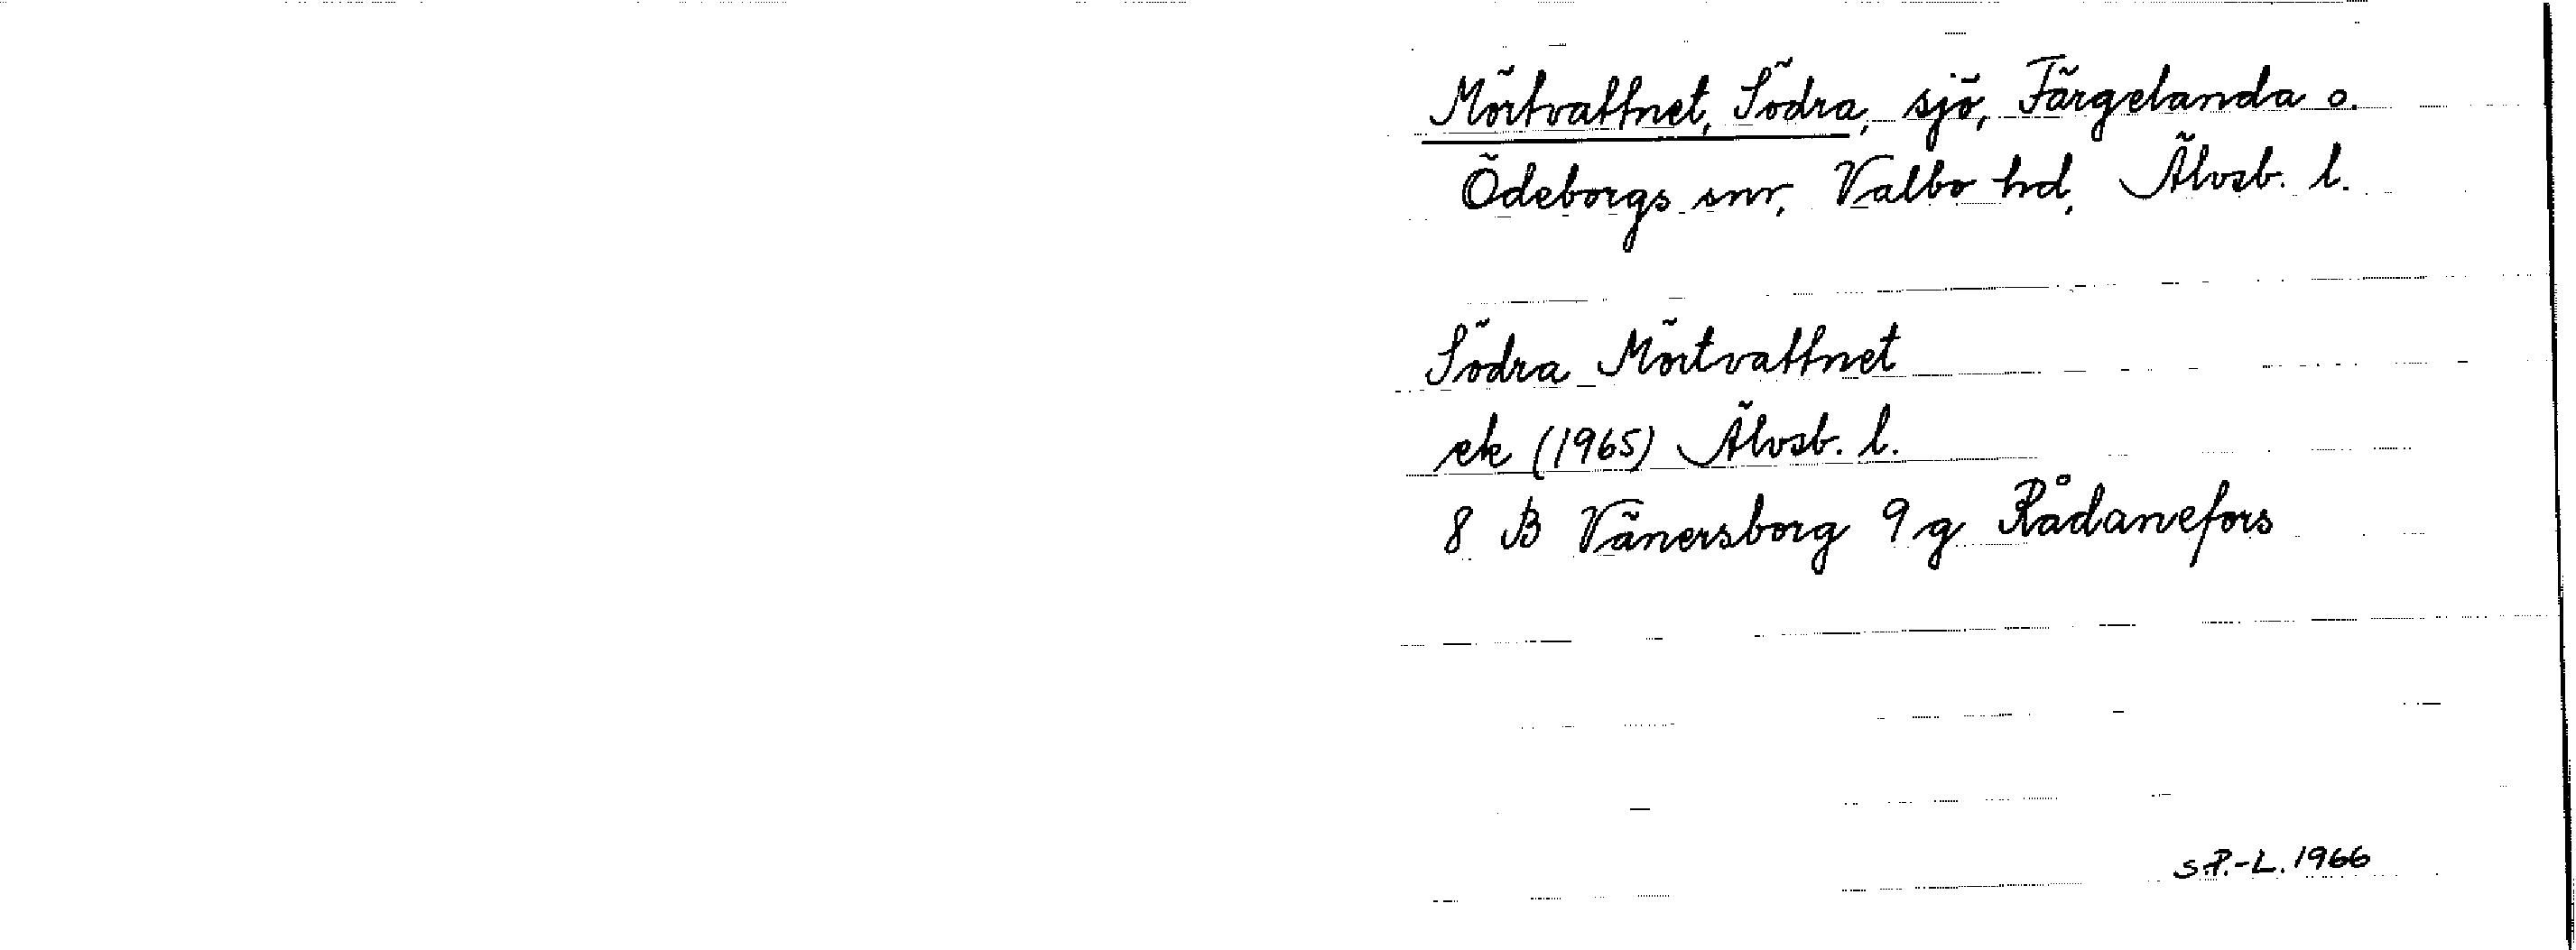 Mörtvattnet, Södra, sjö, Färgelanda o.
Ödeborgs snr, Valbo hd, Älvsb. l.
Södra Mörtvattnet
ek (1965) Älvsb. l.
8 B Vänersborg 9 g Rådanefors
S.P.-L. 1966